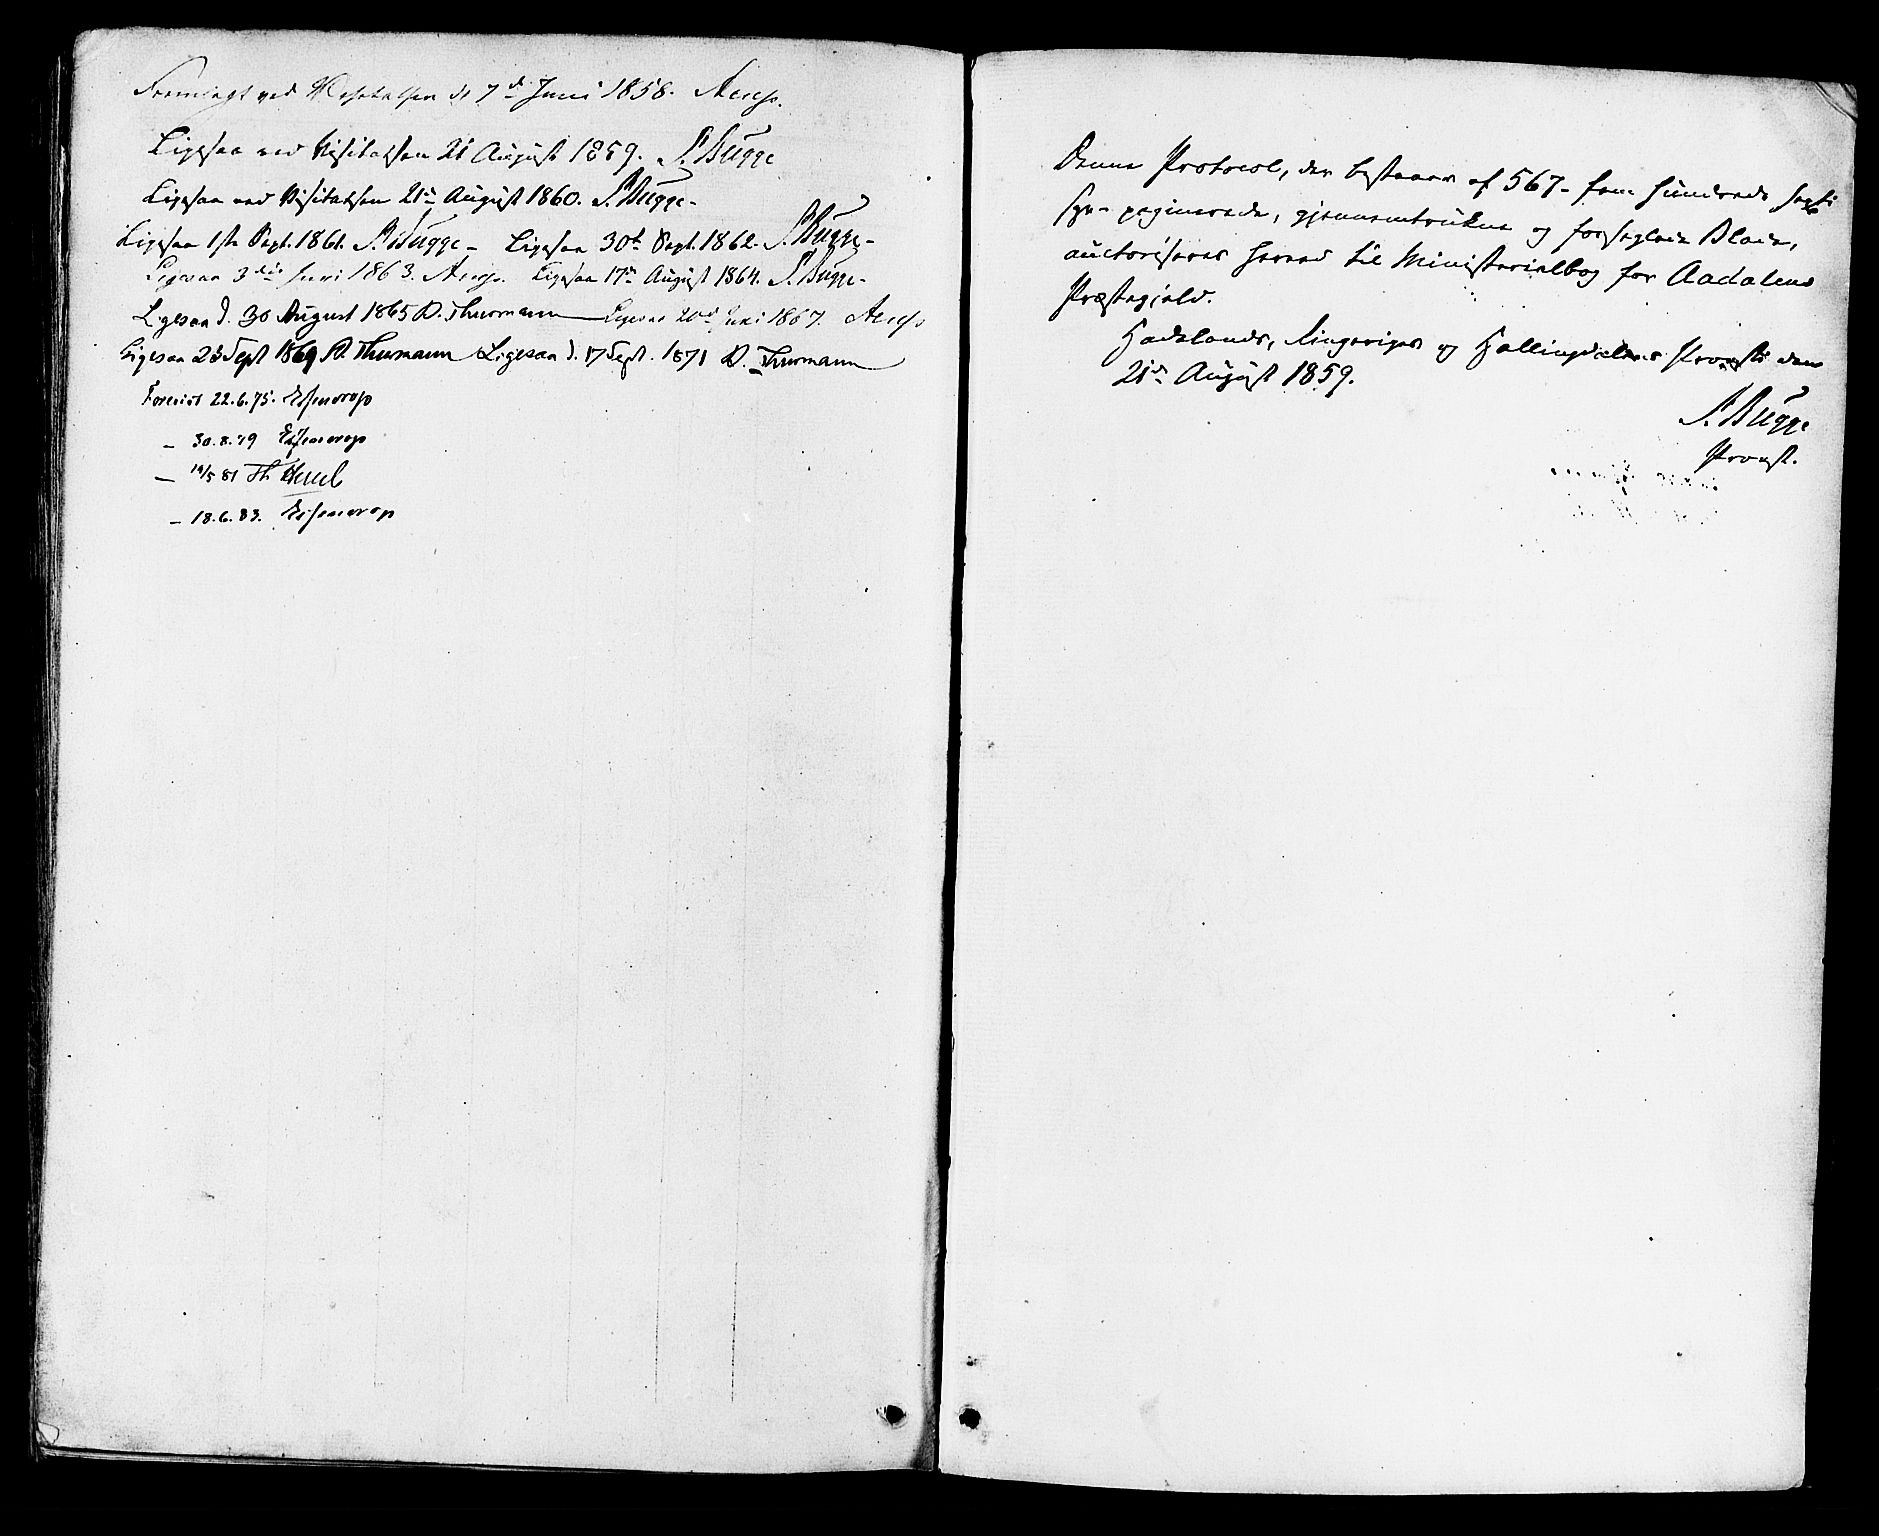 Fremlagt ved Visitatsen d 7d Juni 1858. Arup.
Ligesaa ved Visitatsen 21 August 1859. S. Bugge
Ligesaa ved Visitatsen 21de August 1860. S. Bugge
Ligesaa 1ste Sept. 1861. S. Bugge - Ligesaa 30te Sept. 1862. S. Bugge -
Ligesaa 3die Juni 1863. Arup. Ligesaa 17de August 1864. S. Bugge -
Ligesaa d. 30 August 1865 D. Thurmann Ligesaa 20de Juni 1867. Arup
Ligesaa 23 Sept 1869 D. Thurmann Ligesaa d. 17 Sept. 1871 D. Thurmann
Forevist 22.6.75. Essendrop
- 30.8.79 Essendrop
- 81 Th
- 18.6.83. Essendrop
Denne Protocol, der bestaaer af 567 - fem hundrede sexti
syv - paginerede, gjennemtrukne og forseglede Blade,
auctoriseres herved til Ministerialbog for Aadalens
Præstegjeld.
Hadelands, Ringeriges og Hallingdalens Provsti den
21de August 1859.
S. Bugge
Provst.